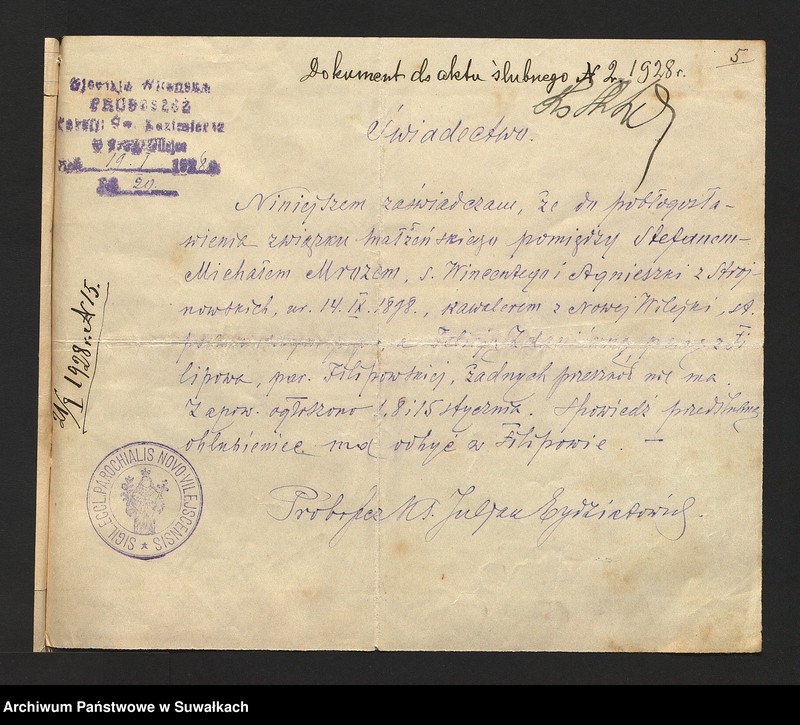 5.
Dokument do aktu ślubnego № 2. 1928 r.
PROBOSZCZ
Parafji Św. Kazimierza
19. I 1928
№ 20
Świadectwo.
Niniejszem zaświadczam, że do pobłogosła-
wienia związku małżeńskiego pomiędzy Stefanem-
Michałem Mrozem, s. Wincentego i Agnieszki z Stroj-
nowskich, ur. 14. IX. 1898., kawalerem z Nowej Wilejki, st.
a Felicją panną z Fi-
lipowa, par. Filipowskiej, żadnych przeszkód nie ma.
Zapow. ogłoszono 1, 8 i 15 stycznia. Spowiedź przedślubną
oblubieniec ma odbyć w Filipowie. —
Proboszcz Ks. Juljan Eydziatowicz.
21/I 1928 r. № 15.
SIGIL. ECCL. PAROCHIALIS NOVO-VILEJSCENSIS
Archiwum Państwowe w Suwałkach